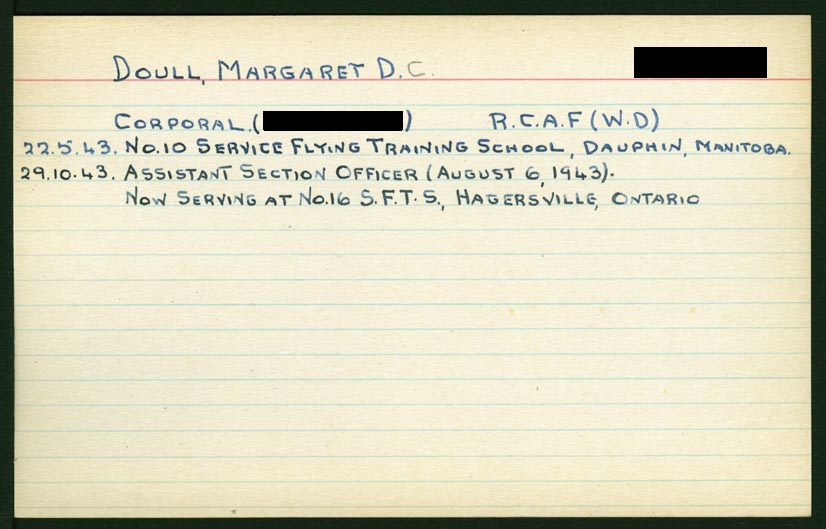 DOULL, MARGARET D. C.
CORPORAL. ( ) R.C.A.F (W.D)
22.5.43. NO.10 SERVICE FLYING TRAINING SCHOOL, DAUPHIN, MANITOBA.
29.10.43. ASSISTANT SECTION OFFICER (AUGUST 6, 1943).
NOW SERVING AT NO.16 S.F.T.S., HAGERSVILLE, ONTARIO